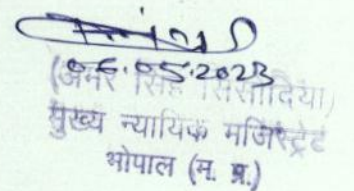 06.05.2023
(अमर सिंह सिसोदिया)
मुख्य न्यायिक मजिस्ट्रेट
भोपाल (म. प्र.)